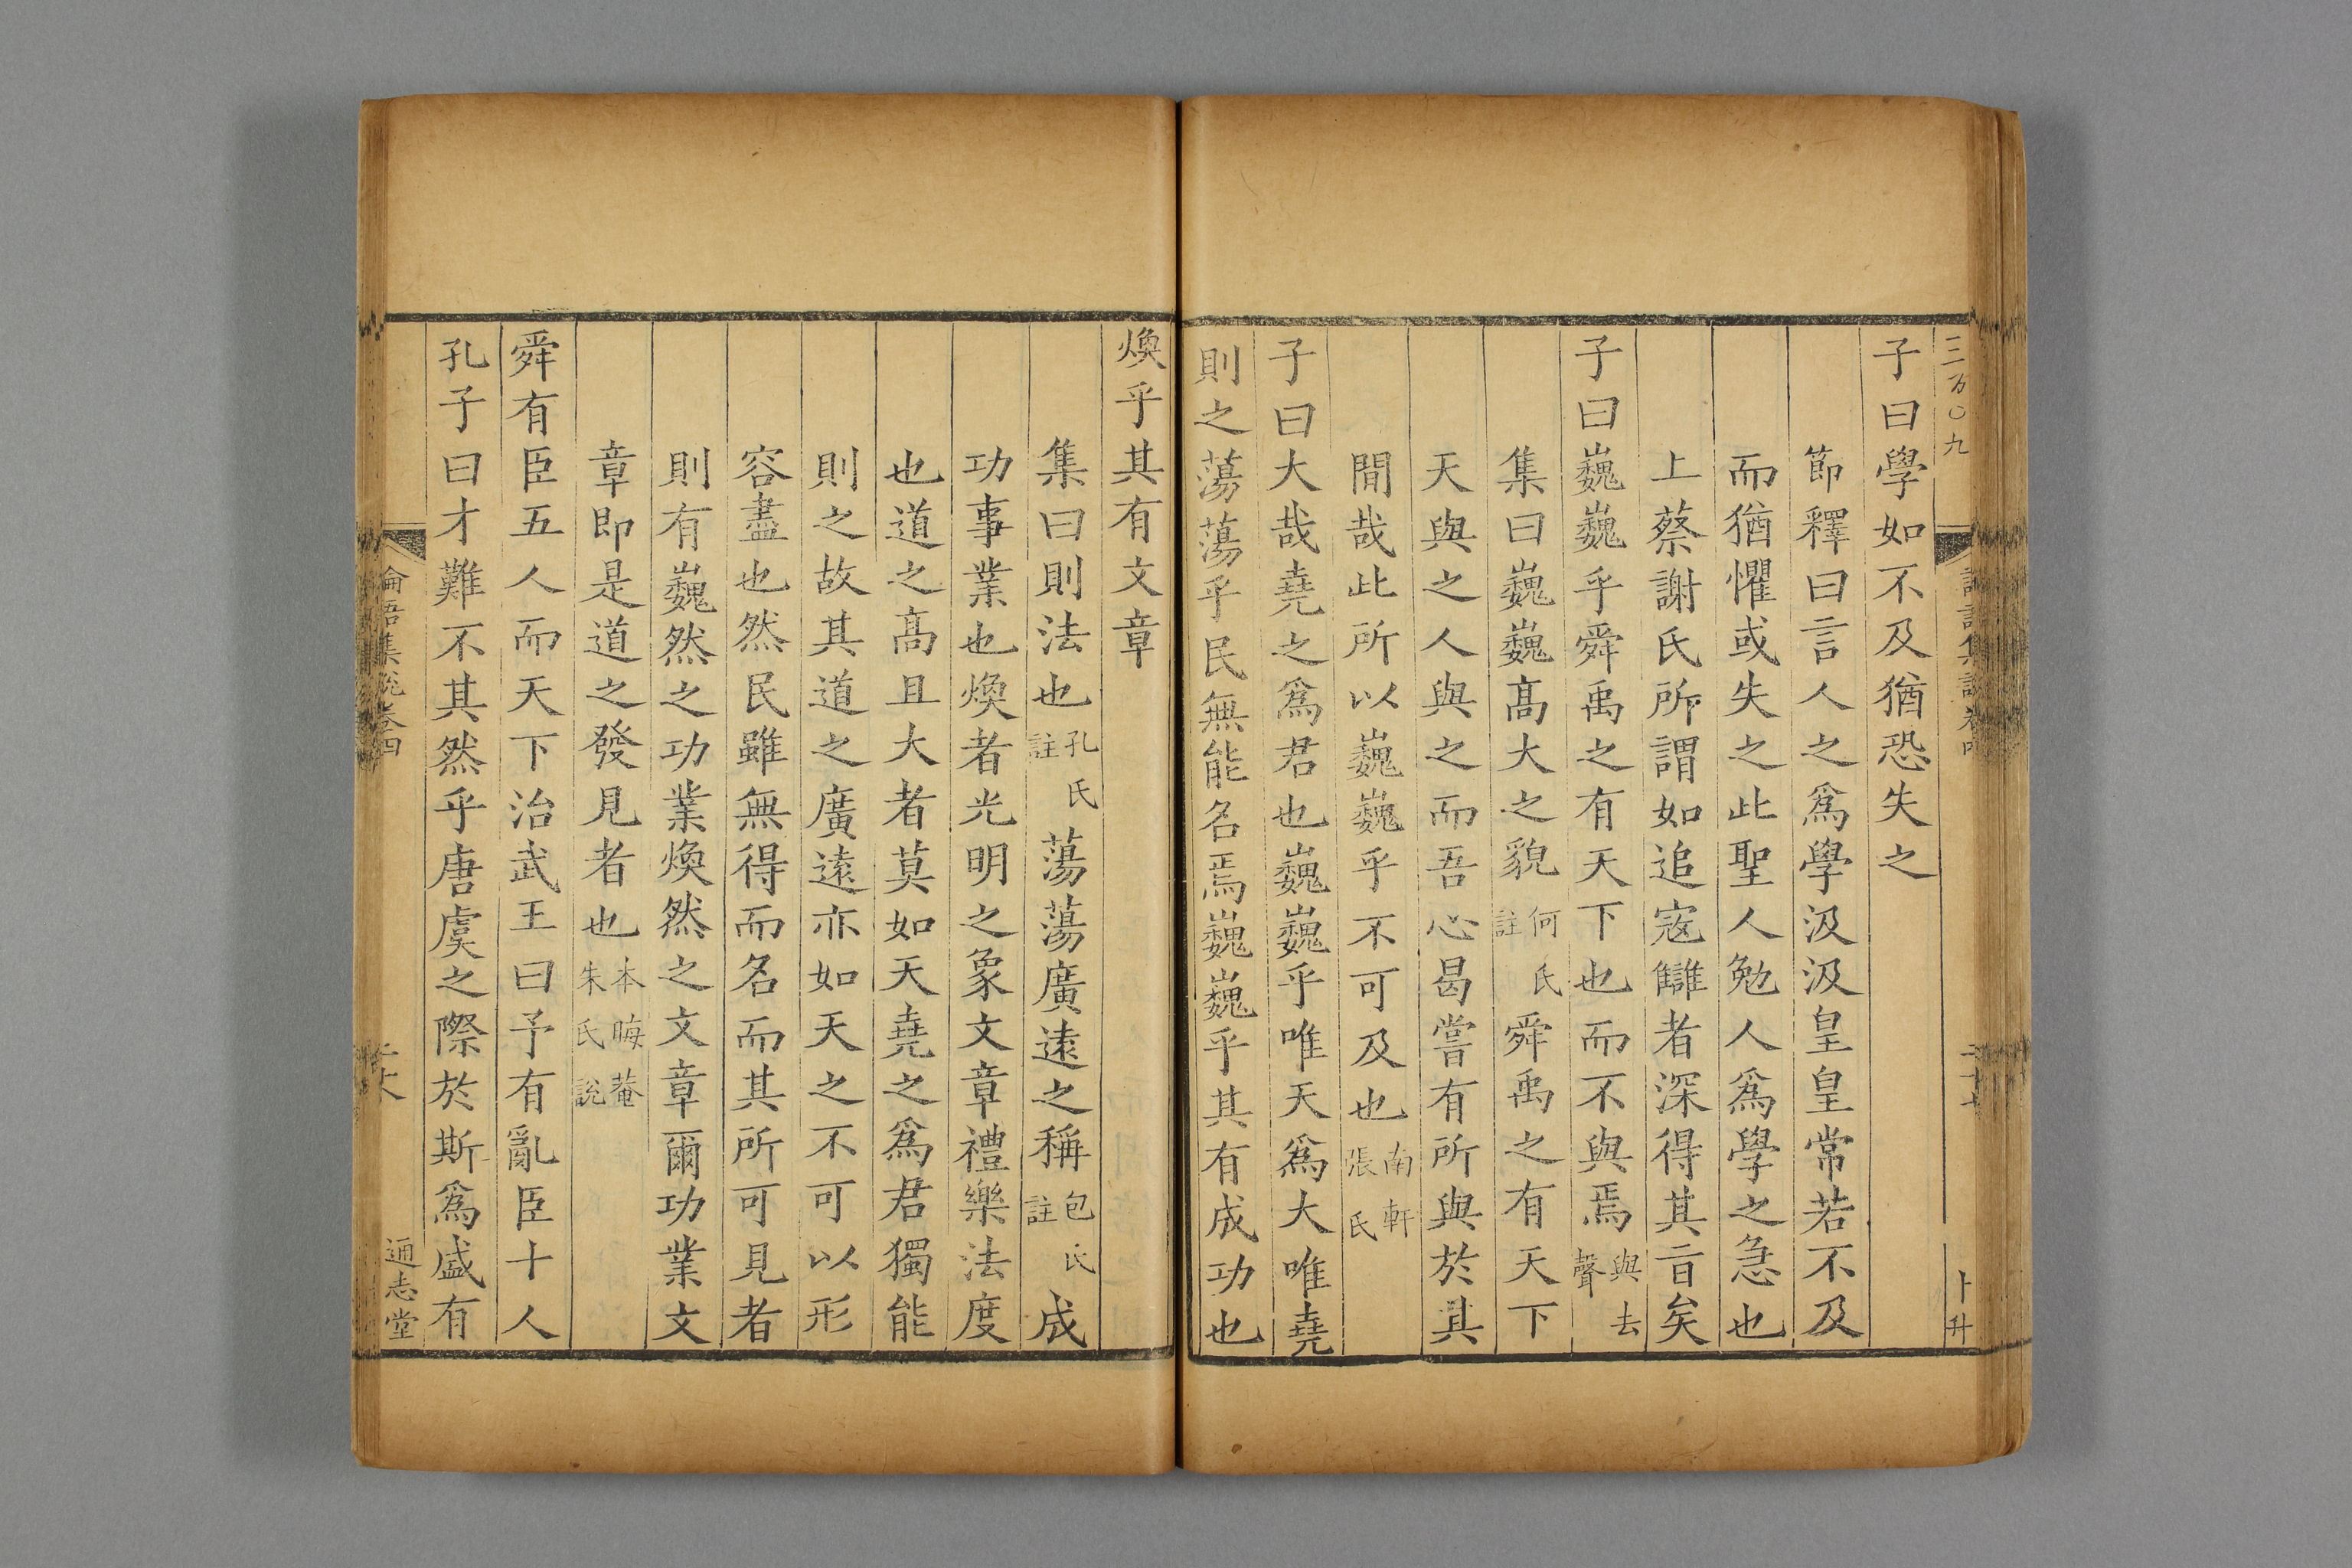 三百〇九
卜升
子曰學如不及猶恐失之
節釋曰言人之爲學汲汲皇皇常若不及
而猶懼或失之此聖人勉人爲學之急也
上蔡謝氏所謂如追寇讎者深得其㫖矣
子曰巍巍乎舜禹之有天下也而不與焉與去聲
集曰巍巍髙大之貌何氏註舜禹之有天下
天與之人與之而吾心曷嘗有所與於其
間哉此所以巍巍乎不可及也南軒張氏
子曰大哉堯之爲君也巍巍乎唯天爲大唯堯
則之蕩蕩乎民無能名焉巍巍乎其有成功也
煥乎其有文章
集曰則法也孔氏註蕩蕩廣遠之稱包氏註成
功事業也煥者光明之象文章禮樂法度
也道之髙且大者莫如天堯之爲君獨能
則之故其道之廣遠亦如天之不可以形
容盡也然民雖無得而名而其所可見者
則有巍然之功業煥然之文章爾功業文
章即是道之發見者也本晦菴朱氏說
舜有臣五人而天下治武王曰予有亂臣十人
孔子曰才難不其然乎唐虞之際於斯爲盛有
論語集說卷四
通志堂